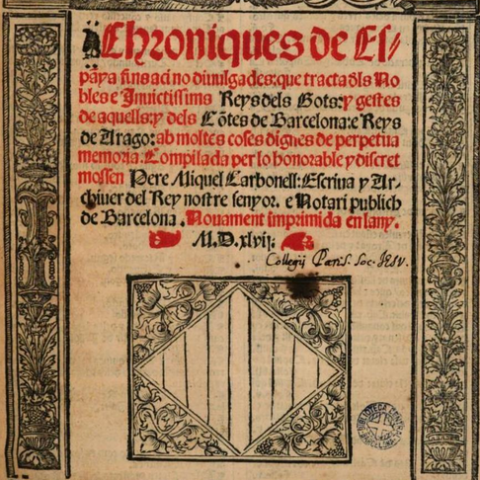 Chroniques de Es/
pāya fins aci no diuulgades: que tracta dls No
bles e Inuictissims Reys dels Gots: y gestes
de aquells: y dels Cōtes de Barcelona: e Reys
de Arago: ab moltes coses dignes de perpetua
memoria. Compilada per lo honorable y discret
mossen Pere Miquel Carbonell: Escriua y Ar-
chiuer del Rey nostre senyor. e Notari publich
de Barcelona. Nouament imprimida en lany.
M.D.xlvij.
Collegij Paris. Soc. JESV.
BIBLIOTECA
BARCELONA